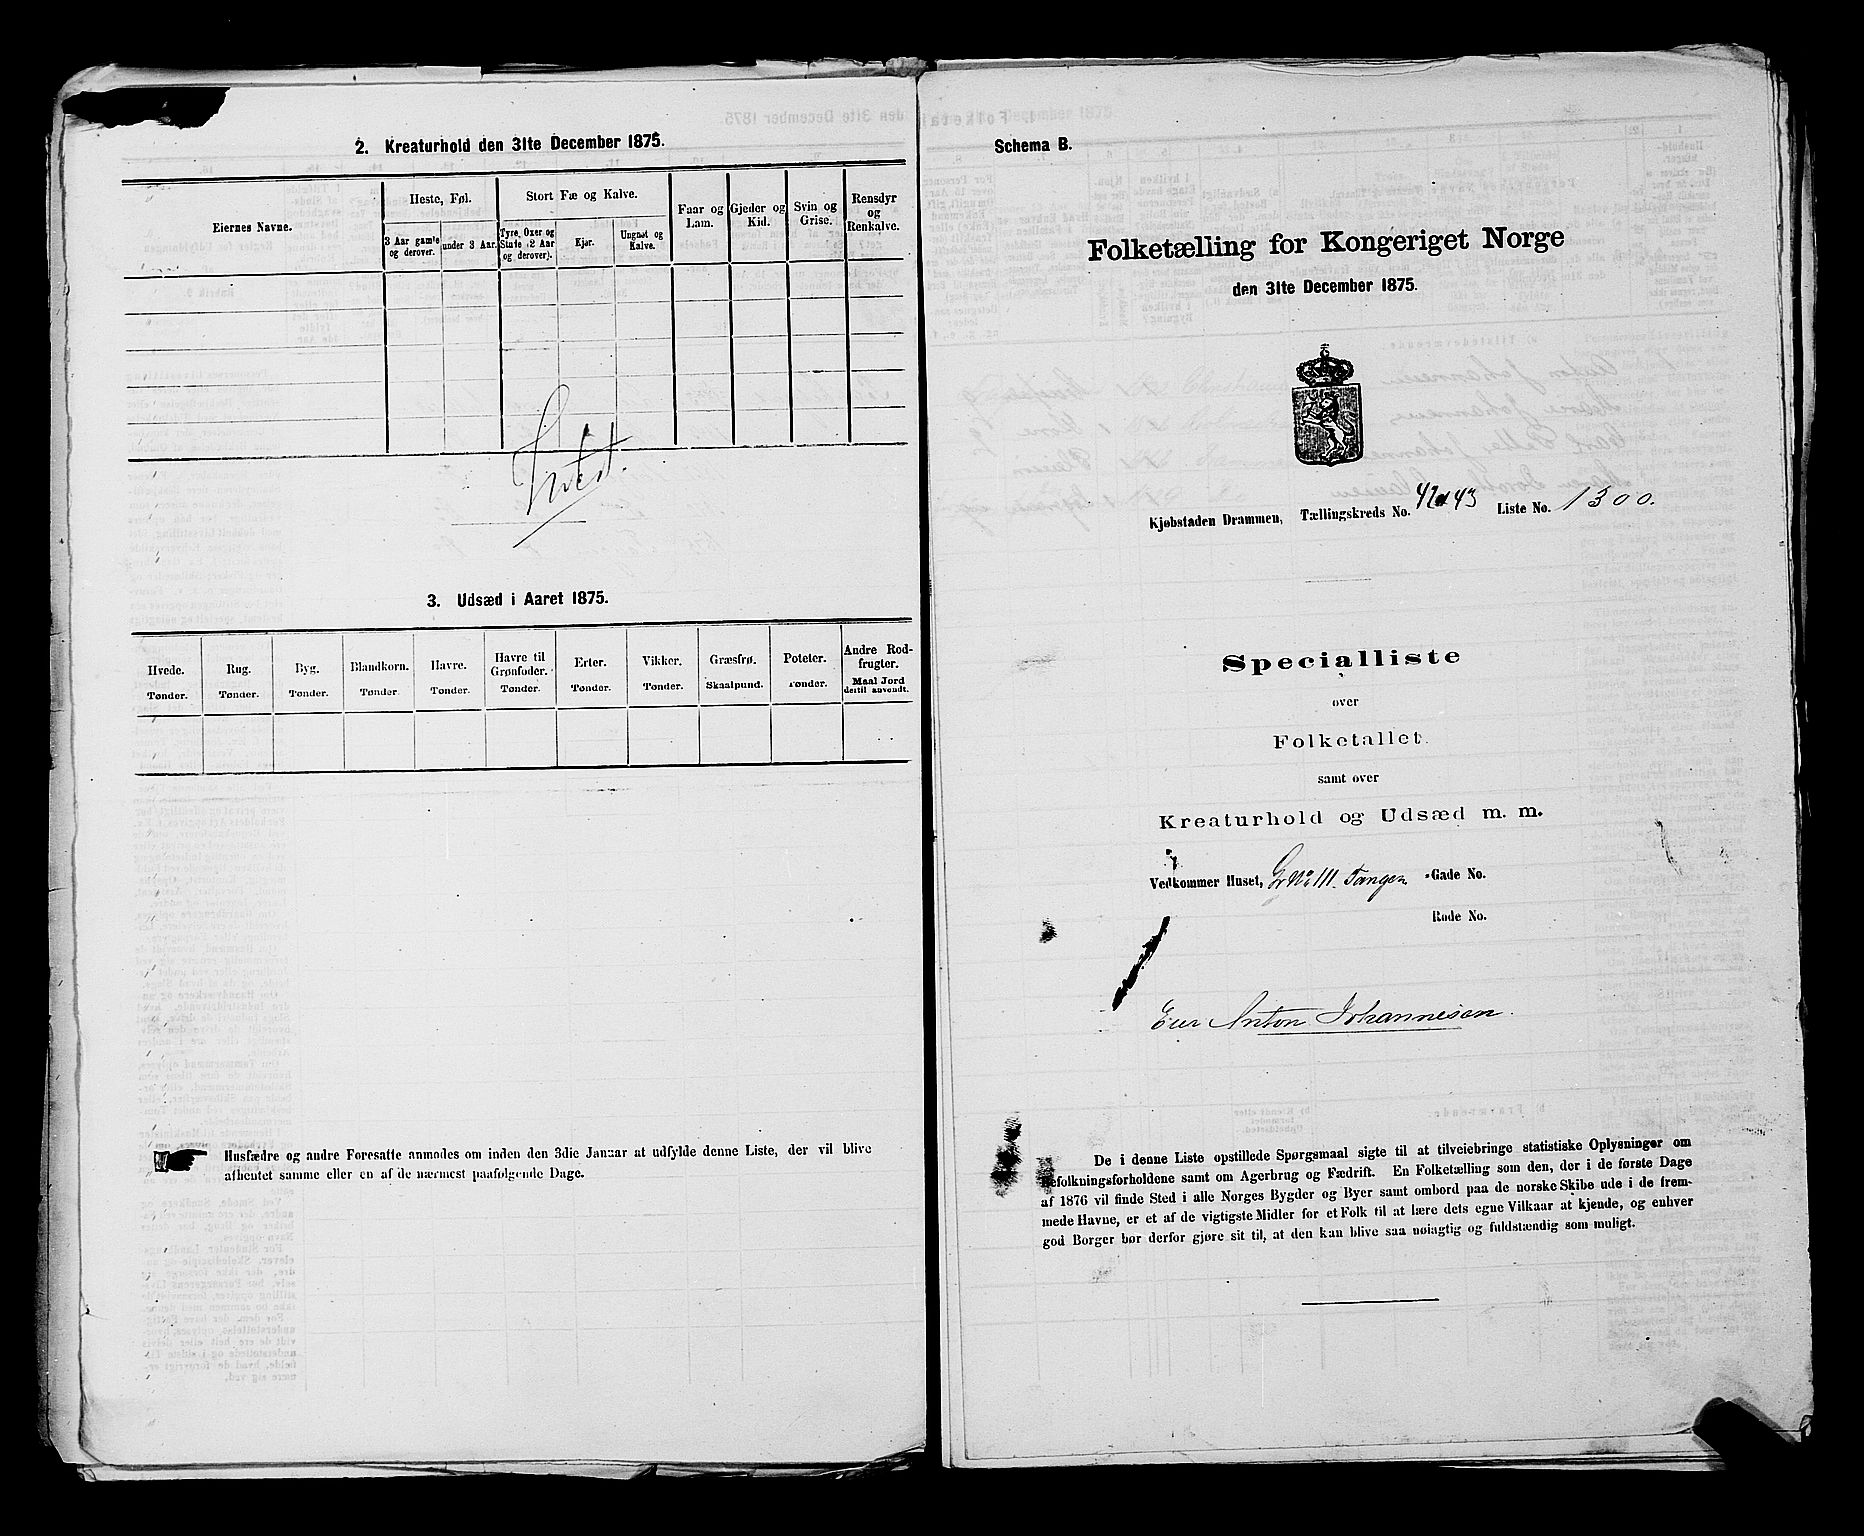 2. Kreaturhold den 31te December 1875.
Eiernes Navne.
Heste, Føl.
3 Aar gamle og derover.
under 3 Aar.
Stort Fæ og Kalve.
Tyre, Oxer og Stude (2 Aar og derover).
Kjør.
Ungnøt og Kalve.
Faar og Lam.
Gjeder og Kid.
Svin og Grise.
Rensdyr og Renkalve.
3. Udsæd i Aaret 1875.
Hvede. Tønder.
Rug. Tønder.
Byg. Tønder.
Blandkorn. Tønder.
Havre. Tønder.
Havre til Grønfoder. Tønder.
Erter. Tønder.
Vikker. Tønder.
Græsfrø. Skaalpund.
Poteter. Tønder.
Andre Rodfrugter. Maal Jord dertil anvendt.
Husfædre og andre Foresatte anmodes om inden den 3die Januar at udfylde denne Liste, der vil blive
afhentet samme eller en af de nærmest paafølgende Dage.
Schema B.
Folketælling for Kongeriget Norge
den 31te December 1875.
Kjøbstaden Drammen, Tællingskreds No. 42 & 43 Liste No. 1300.
Specialliste
over
Folketallet
samt over
Kreaturhold og Udsæd m. m.
Vedkommer Huset, Gr No 111. Tangen Gade No.
Rode No.
Eier Anton Johannesen.
De i denne Liste opstillede Spørgsmaal sigte til at tilveiebringe statistiske Oplysninger om
Befolkningsforholdene samt om Agerbrug og Fædrift. En Folketælling som den, der i de første Dage
af 1876 vil finde Sted i alle Norges Bygder og Byer samt ombord paa de norske Skibe ude i de frem-
mede Havne, er et af de vigtigste Midler for et Folk til at lære dets egne Vilkaar at kjende, og enhver
god Borger bør derfor gjøre sit til, at den kan blive saa nøiagtig og fuldstændig som muligt.